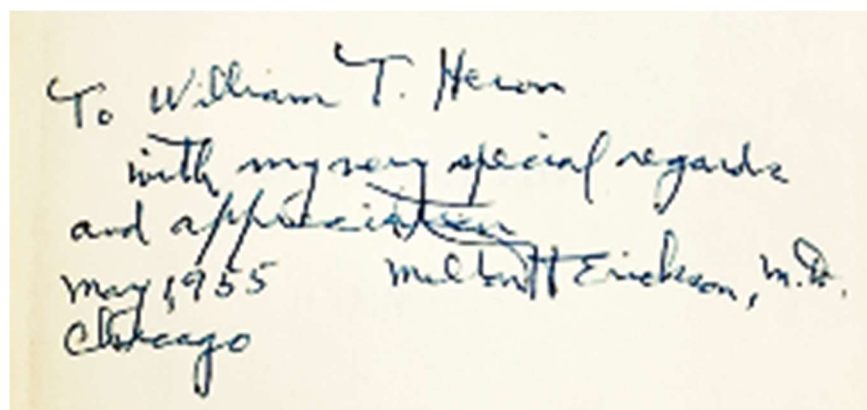 To William T. Heron
with my very special regards
and appreciation
May, 1955 Milton H Erickson, M.D.
Chicago